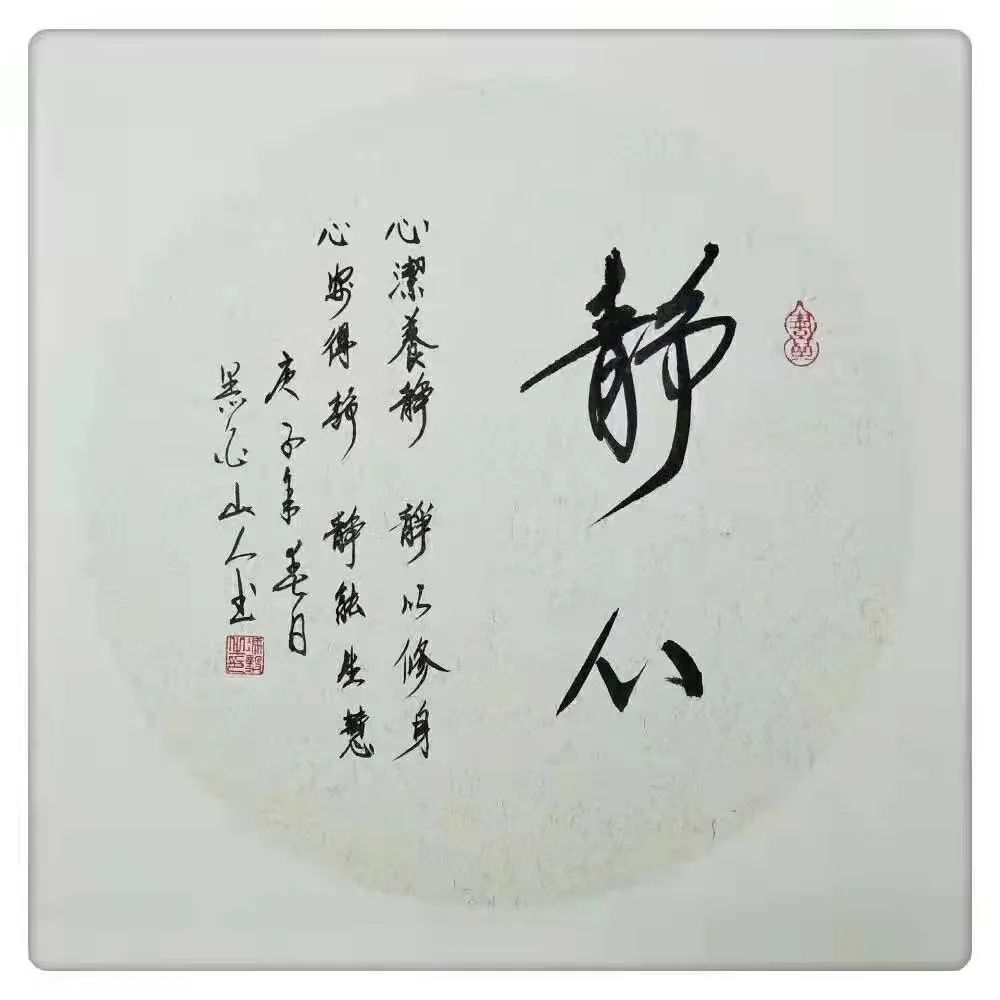 静心
心潔養静 静以修身
心安得静 静能生慧
庚子年春日
墨石山人书